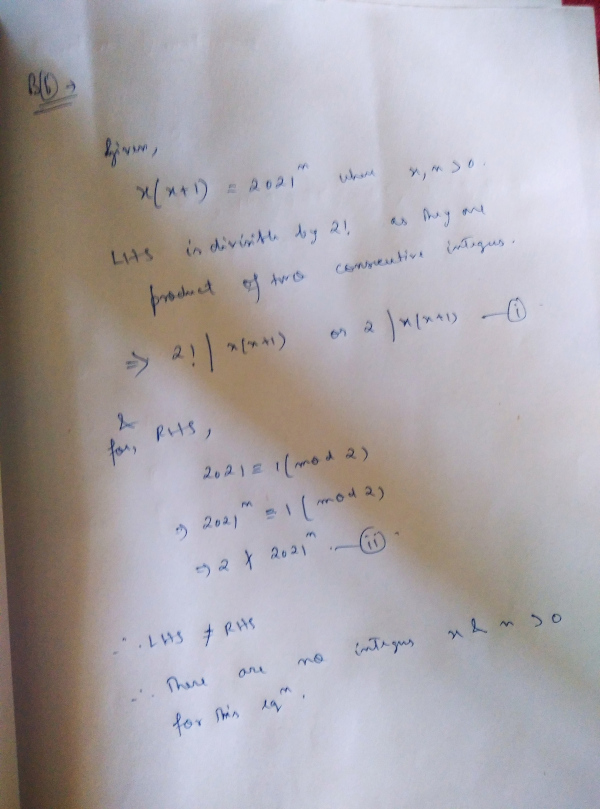 B(b) →
Given,
x(x+1) = 2021^n where x, n > 0.
LHS is divisible by 2! as they are
product of two consecutive integers.
⇒ 2! | x(x+1) or 2 | x(x+1) — (i)
&
for, RHS,
2021 ≡ 1 (mod 2)
⇒ 2021^n ≡ 1 (mod 2)
⇒ 2 ∤ 2021^n. — (ii)
∴ LHS ≠ RHS
∴ There are no integers x & n > 0
for this eqⁿ.